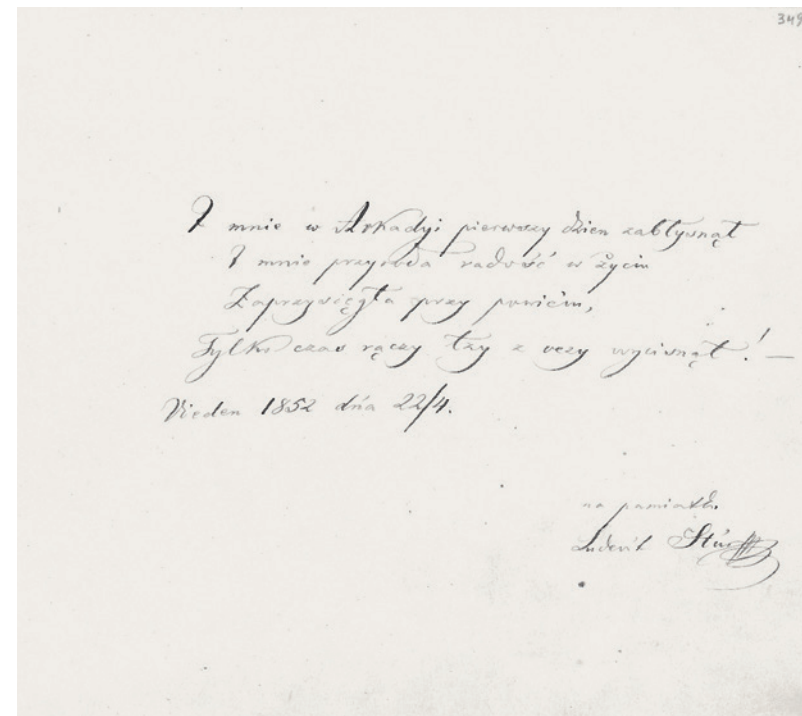 349
I mnie w Arkadyi pierwszy dzien zabłysnął
I mnie przyroda radość w życiu
Zaprzysięgła przy powiciu,
Tylko czas rączy łzy z oczy wycisnął! —
Vieden 1852 dňa 22/4.
na pamiatku
Ludevít Štúr